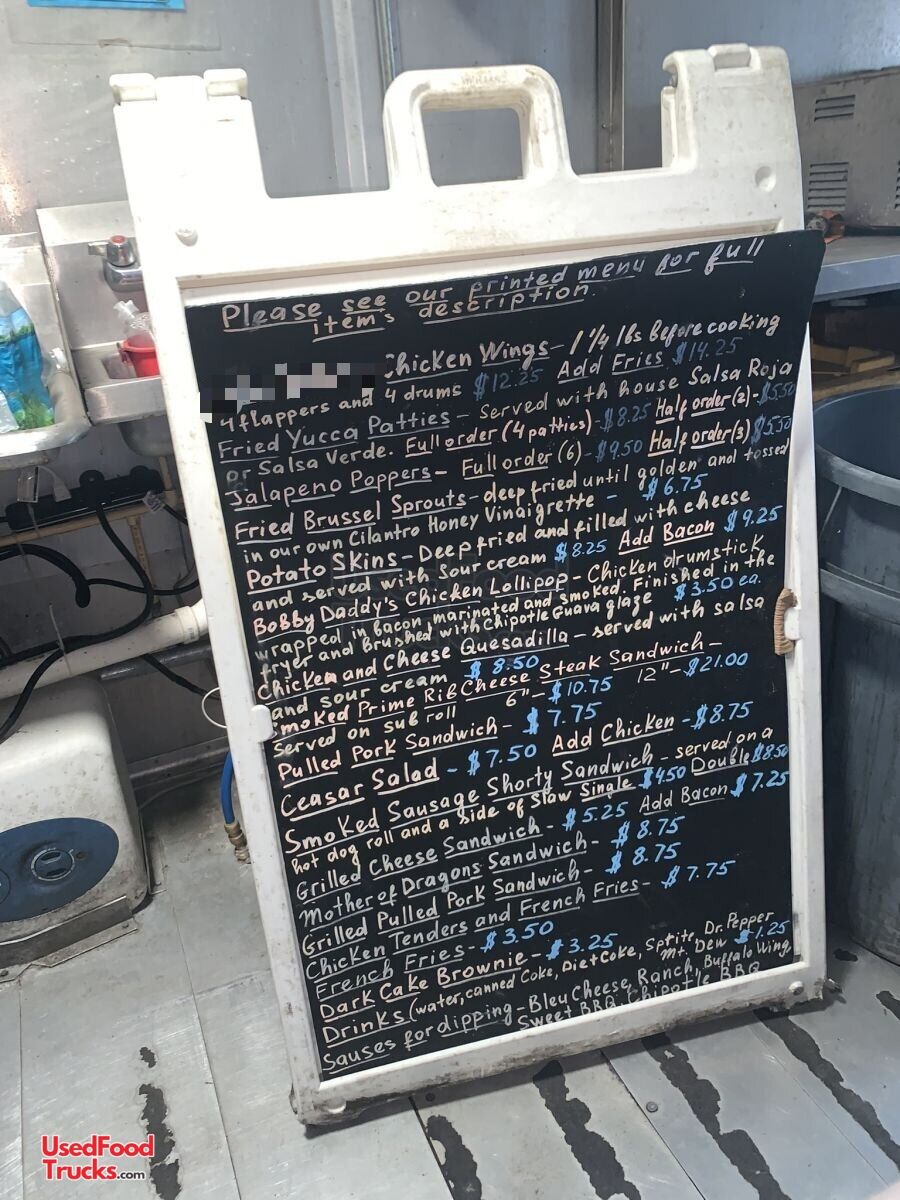 Please see our printed menu for full
item's description.
Chicken Wings - 1 1/4 lbs before cooking
4 flappers and 4 drums $12.25 Add Fries $14.25
Fried Yucca Patties - Served with house Salsa Roja
or Salsa Verde. Full order (4 patties) - $8.25 Half order (2) - $5.50
Jalapeno Poppers - Full order (6) - $9.50 Half order (3) $5.50
Fried Brussel Sprouts - deep fried until golden and tossed
in our own Cilantro Honey Vinaigrette - $6.75
Potato Skins - Deep fried and filled with cheese
and served with sour cream $8.25 Add Bacon $9.25
Bobby Daddy's Chicken Lollipop - Chicken drumstick
wrapped in bacon marinated and smoked. Finished in the
fryer and brushed with Chipotle Guava glaze $3.50 ea.
Chicken and Cheese Quesadilla - served with salsa
and sour cream $8.50
moked Prime Rib Cheese Steak Sandwich -
served on sub roll 6" - $10.75 12" - $21.00
Pulled Pork Sandwich - $7.75
Ceasar Salad - $7.50 Add Chicken - $8.75
Smoked Sausage Shorty Sandwich - served on a
hot dog roll and a side of slaw Single $4.50 Double $8.50
Grilled Cheese Sandwich - $5.25 Add Bacon $7.25
Mother of Dragons Sandwich - $8.75
Grilled Pulled Pork Sandwich - $8.75
Chicken Tenders and French Fries - $7.75
French Fries - $3.50
Dark Cake Brownie - $3.25
Drinks (water, canned Coke, Diet Coke, Sprite, Dr. Pepper
Mt. Dew $1.25
Sauses for dipping - Bleu Cheese, Ranch, Buffalo Wing
Sweet BBQ, Chipotle BBQ
UsedFood
Trucks.com